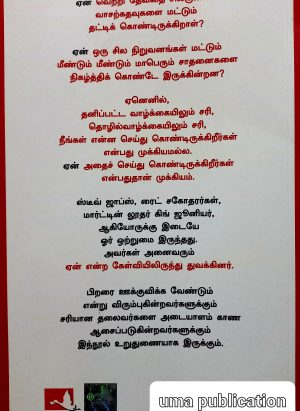 ஏன்
வாசற்கதவுகளை மட்டும்
தட்டிக் கொண்டிருக்கிறாள்?
ஏன் ஒரு சில நிறுவனங்கள் மட்டும்
மீண்டும் மீண்டும் மாபெரும் சாதனைகளை
நிகழ்த்திக் கொண்டே இருக்கின்றன?
ஏனெனில்,
தனிப்பட்ட வாழ்க்கையிலும் சரி,
தொழில்வாழ்க்கையிலும் சரி,
நீங்கள் என்ன செய்து கொண்டிருக்கிறீர்கள்
என்பது முக்கியமல்ல.
ஏன் அதைச் செய்து கொண்டிருக்கிறீர்கள்
என்பதுதான் முக்கியம்.
ஸ்டீவ் ஜாப்ஸ், ரைட் சகோதரர்கள்,
மார்ட்டின் லூதர் கிங் ஜூனியர்,
ஆகியோருக்கு இடையே
ஓர் ஒற்றுமை இருந்தது.
அவர்கள் அனைவரும்
ஏன் என்ற கேள்வியிலிருந்து துவக்கினர்.
பிறரை ஊக்குவிக்க வேண்டும்
என்று விரும்புகின்றவர்களுக்கும்
சரியான தலைவர்களை அடையாளம் காண
ஆசைப்படுகின்றவர்களுக்கும்
இந்நூல் உறுதுணையாக இருக்கும்.
uma publication